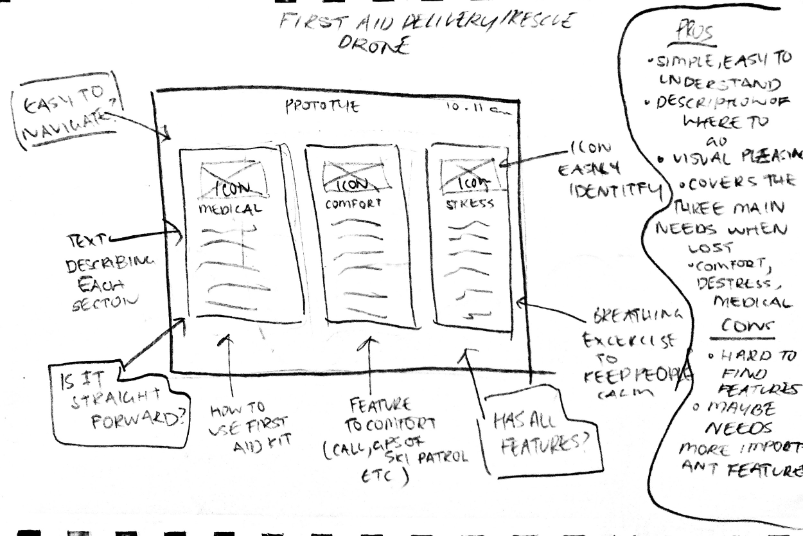 FIRST AID DELIVERY/RESCUE
DRONE
EASY TO
NAVIGATE?
PROTOTYPE
10:11 am
ICON
MEDICAL
ICON
COMFORT
ICON
STRESS
ICON
EASILY
IDENTITFY
TEXT
DESCRIBING
EACH
SECTON
BREATHING
EXCERCISE
TO
KEEP PEOPLE
CALM
IS IT
STRAIGHT
FORWARD?
HOW TO
USE FIRST
AID KIT
FEATURE
TO COMFORT
(CALL, GPS OF
SKI PATROL
ETC)
HAS ALL
FEATURES?
PROS
• SIMPLE, EASY TO
UNDERSTAND
• DESCRIPTION OF
WHERE TO
GO
• VISUAL PLEASING
• COVERS THE
THREE MAIN
NEEDS WHEN
LOST
• COMFORT,
DESTRESS,
MEDICAL
CONS
• HARD TO
FIND
FEATURES
• MAYBE
NEEDS
MORE IMPORT-
ANT FEATURE